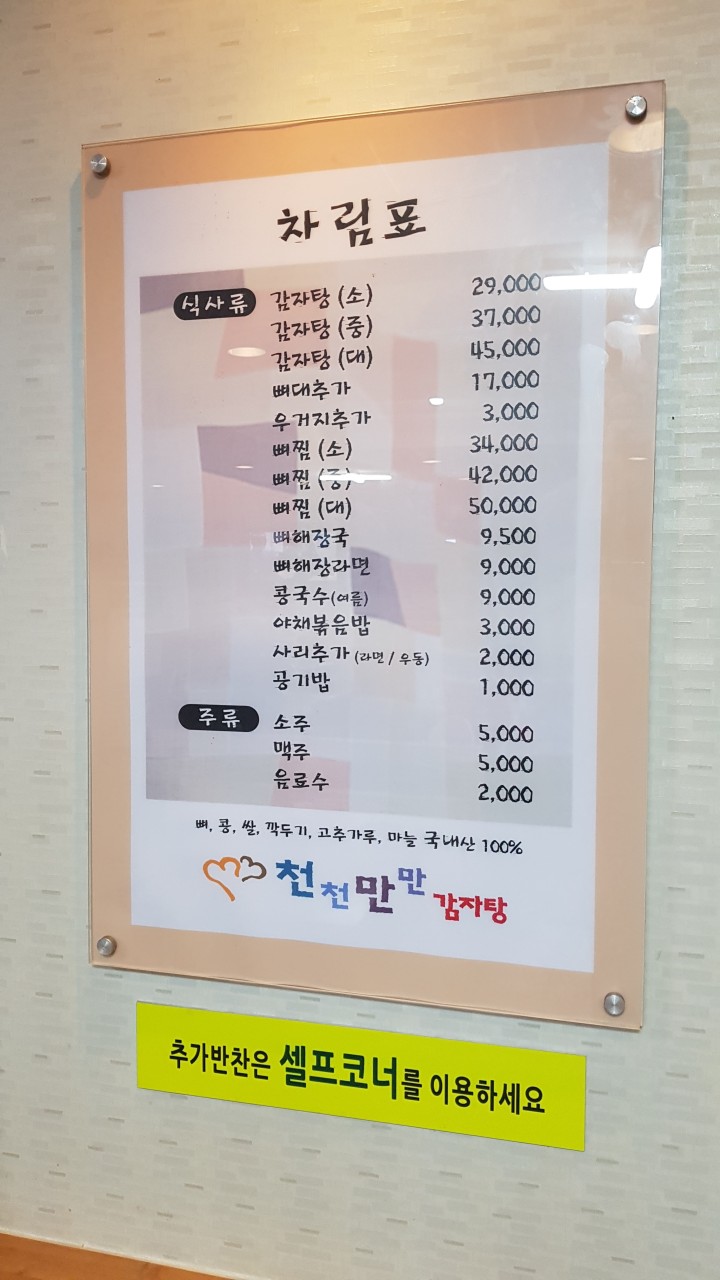 차림표
식사류 감자탕 (소) 29,000
감자탕 (중) 37,000
감자탕 (대) 45,000
뼈대추가 17,000
우거지추가 3,000
뼈찜 (소) 34,000
뼈찜 (중) 42,000
뼈찜 (대) 50,000
뼈해장국 9,500
뼈해장라면 9,000
콩국수(여름) 9,000
야채볶음밥 3,000
사리추가 (라면 / 우동) 2,000
공기밥 1,000
주류 소주 5,000
맥주 5,000
음료수 2,000
뼈, 콩, 쌀, 깍두기, 고추가루, 마늘 국내산 100%
천천만만 감자탕
추가반찬은 셀프코너를 이용하세요